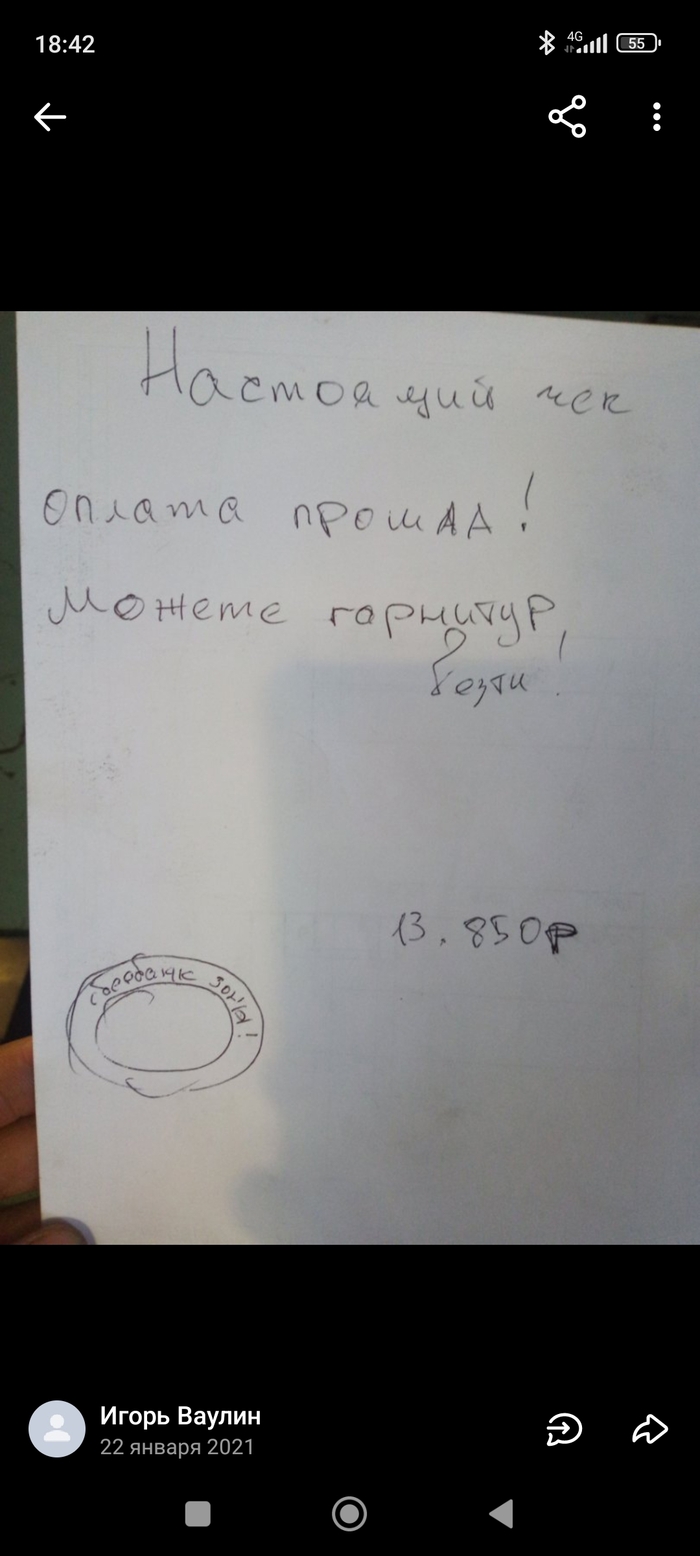 18:42
4G
55
Настоящий чек
оплата прошла!
Можете гарнитур,
везти!
13.850р
сбербанк зоны!
Игорь Ваулин
22 января 2021